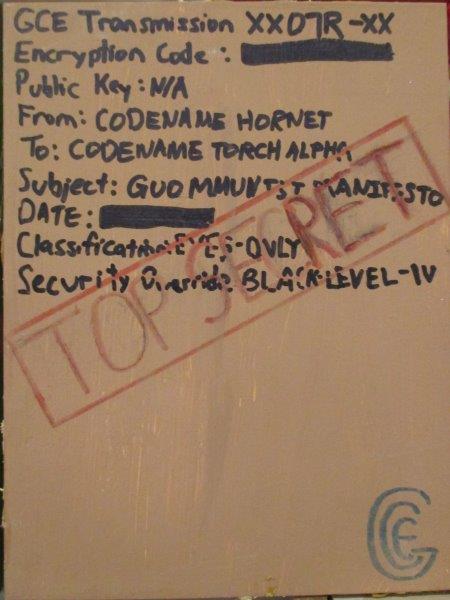 GCE Transmission XX07R-XX
Encryption Code:
Public Key: N/A
From: CODENAME HORNET
To: CODENAME TORCH ALPHA
Subject: GUOMMUNIST MANIFESTO
DATE:
Classification: EYES-ONLY
Security Override: BLACK LEVEL-IV
TOP SECRET
GCE